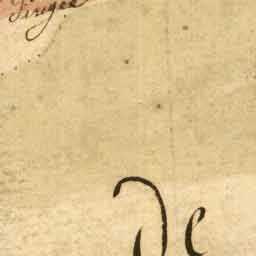 Singes
De